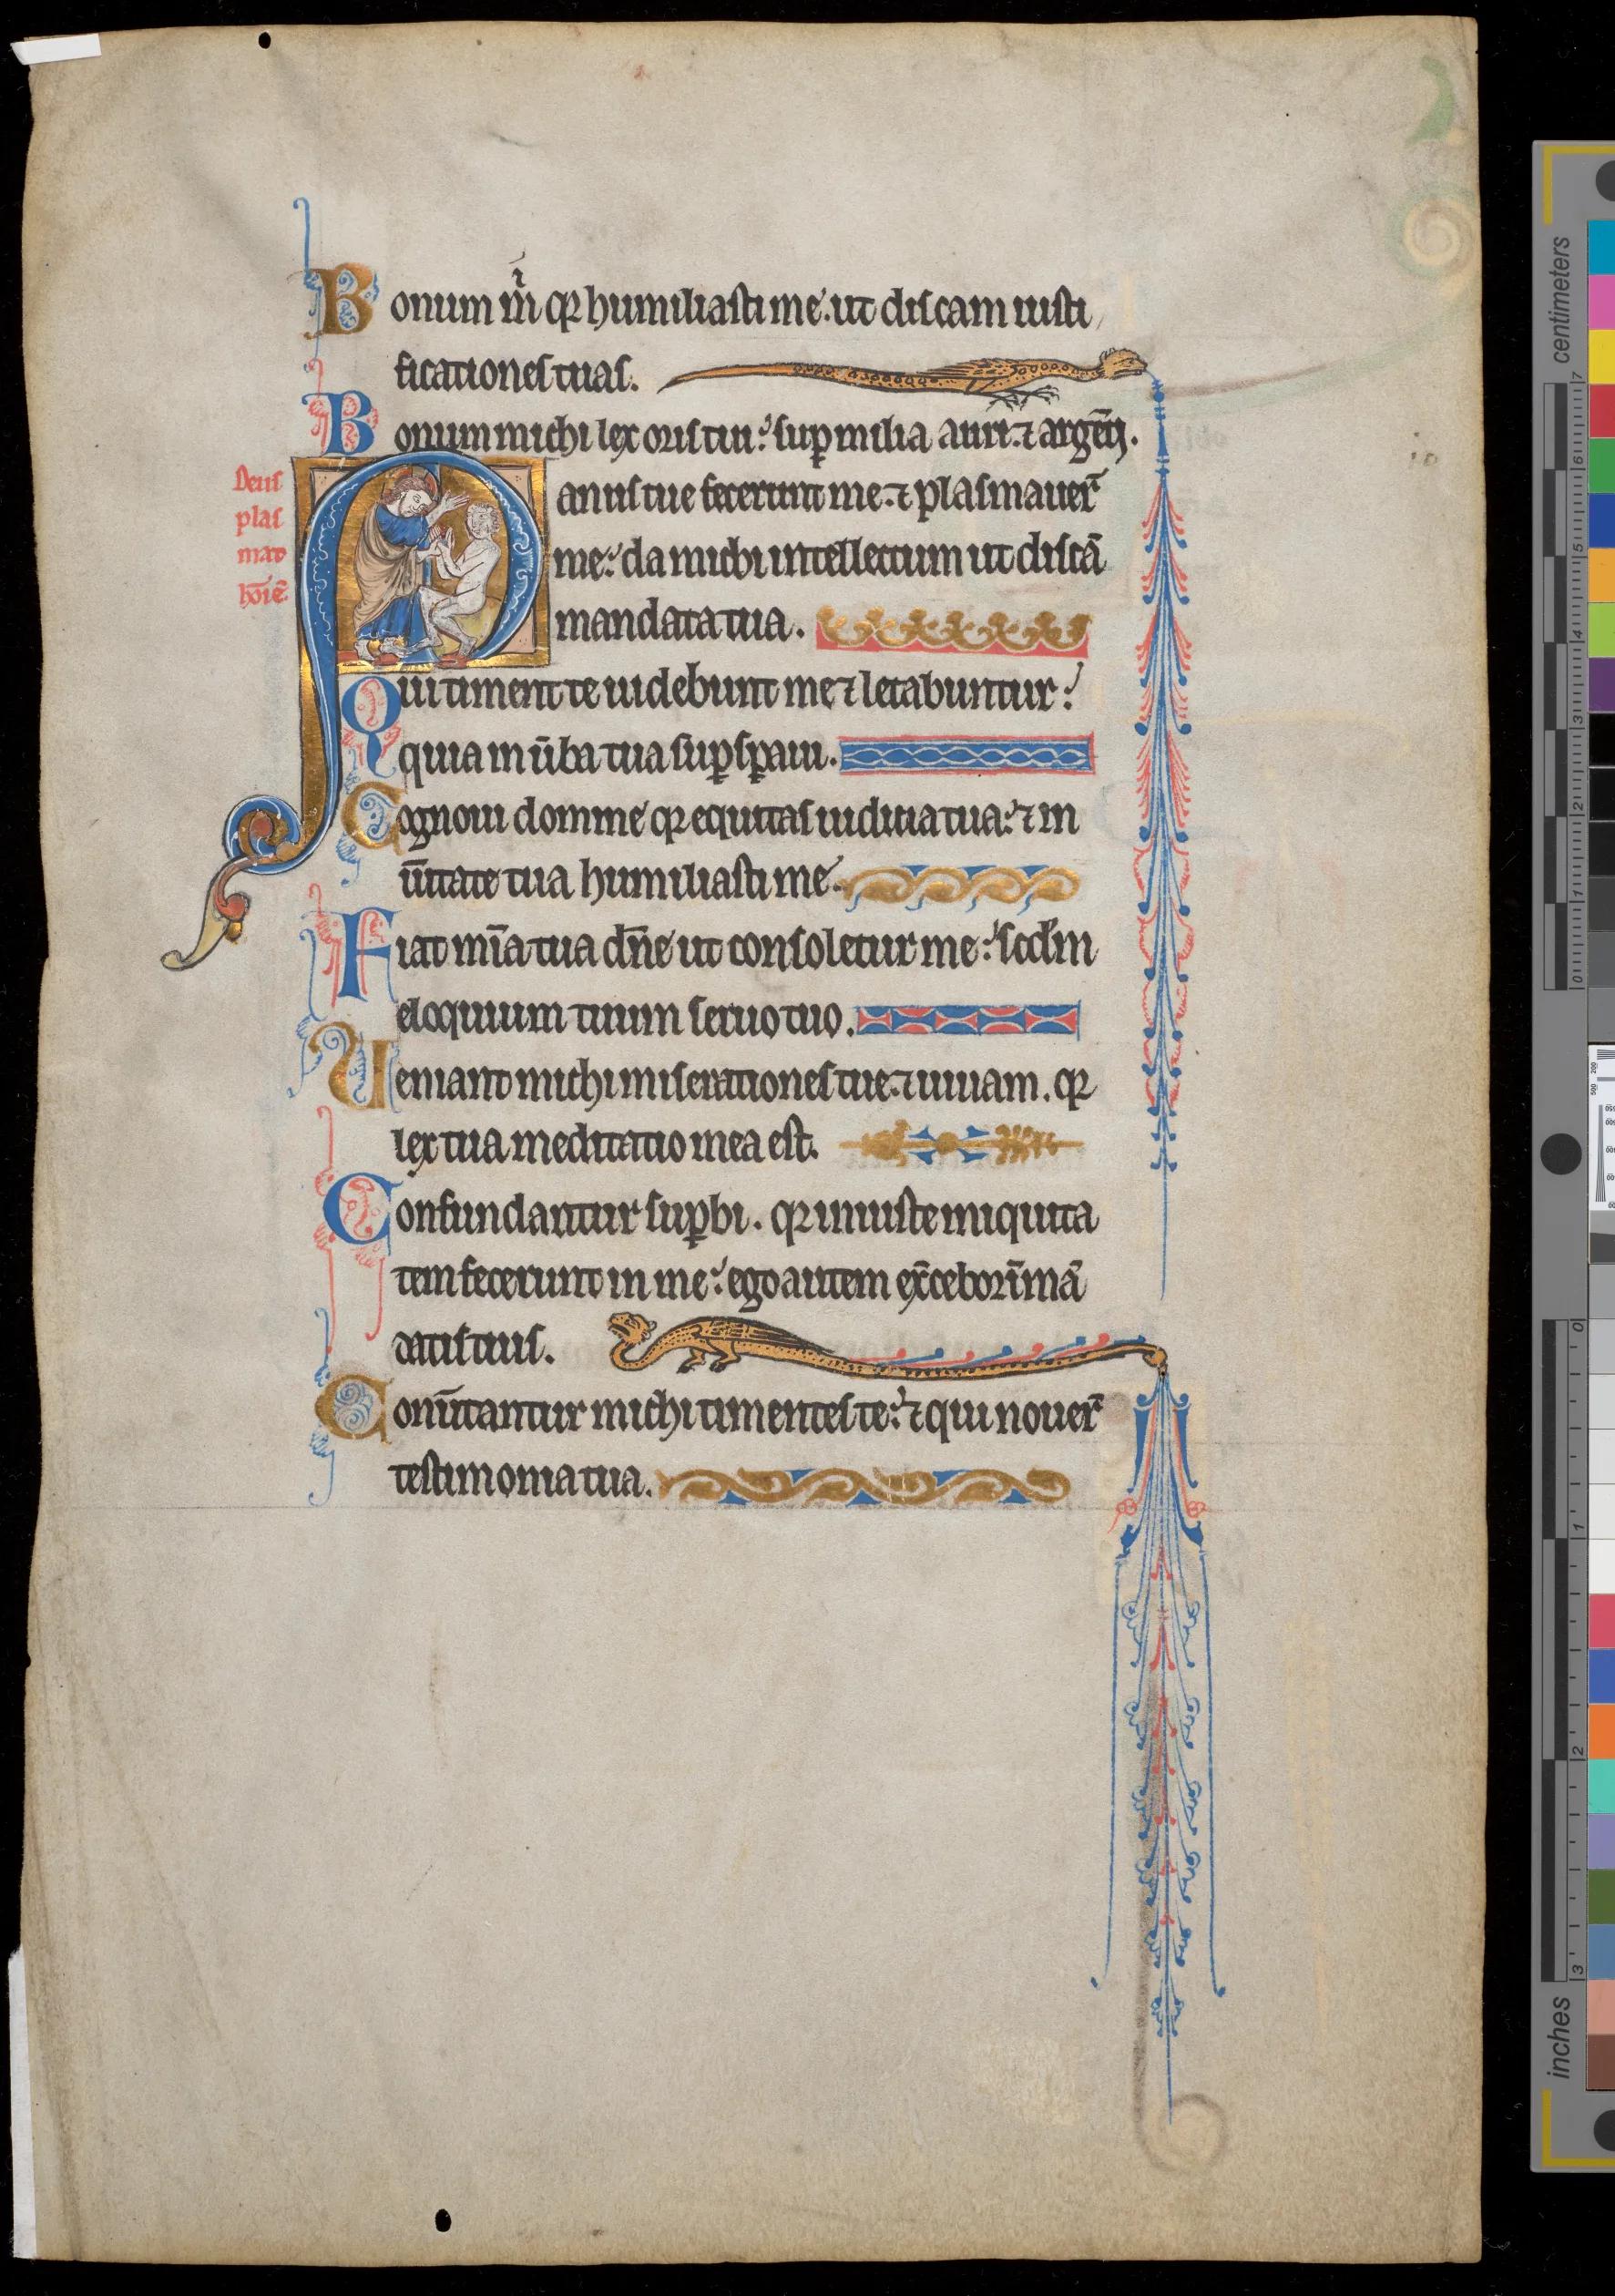 Bonum m̄ qꝛ humiliasti me. ut discam iusti
ficationes tuas.
Bonum michi lex oris tui: suꝑ milia auri ⁊ argēti.
Deus
plas
mat
hoīe
Manus tue fecerunt me ⁊ plasmauer̄
me: da michi intellectum ut discā
mandata tua.
Qui timent te uidebunt me ⁊ letabuntur:
quia in ūba tua suꝑsꝑaui.
Cognoui domine qꝛ equitas iudicia tua: ⁊ in
ūitate tua humiliasti me.
Fiat mīa tua dn̄e ut consoletur me: scdm̄
eloquium tuum seruo tuo.
Ueniant michi miserationes tue ⁊ uiuam. qꝛ
lex tua meditatio mea est.
Confundantur suꝑbi. qꝛ iniuste iniquita
tem fecerunt in me: ego autem ex̄cebor ī mā
datis tuis.
Conūtantur michi timentes te: ⁊ qui nouer̄
testimonia tua.
centimeters
inches